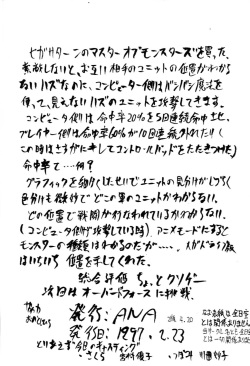 セガサターンのマスターオブモンスターズを買った。
索敵しないと、お互い相手のユニットの位置がわから
ないハズなのに、コンピューター側はバンバン魔法を
使って、見えないハズのユニットを攻撃してきます。
コンピュータ側は命中率20%を5回連続命中させ、
プレイヤー側は命中率60%が10回連続外れたり(
この時はさすがにキレてコントロールパッドをたたきつけた)
命中率て…何?
グラフィックを細かくしたせいでユニットの見分けがしづらく
色分けも微妙でどこの軍のがわからない。
どの位置で戦闘がおこなわれているか分からない。
(コンピュータ側が攻撃している時)アニメモードにすると
モンスターの種族はわかるのだが…、メガドラ版
はいちいち位置を示してくれた。
総合評価 ちょっとクソゲー
次回はオーバードフォースに挑戦
協力
発行:ANA
発行日:1997.2.23
とりあえず今日のキャスティング
さくら 宮村優子